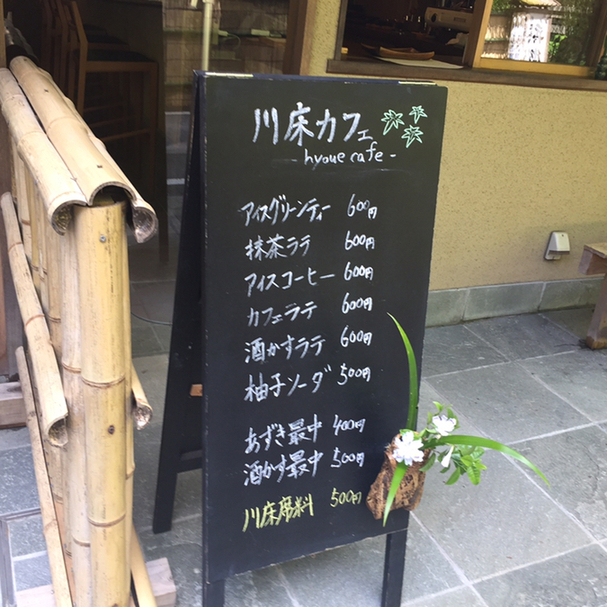 川床カフェ
- hyoue cafe -
アイスグリーンティー 600円
抹茶ラテ 600円
アイスコーヒー 600円
カフェラテ 600円
酒かすラテ 600円
柚子ソーダ 500円
あずき最中 400円
酒かす最中 500円
川床席料 500円